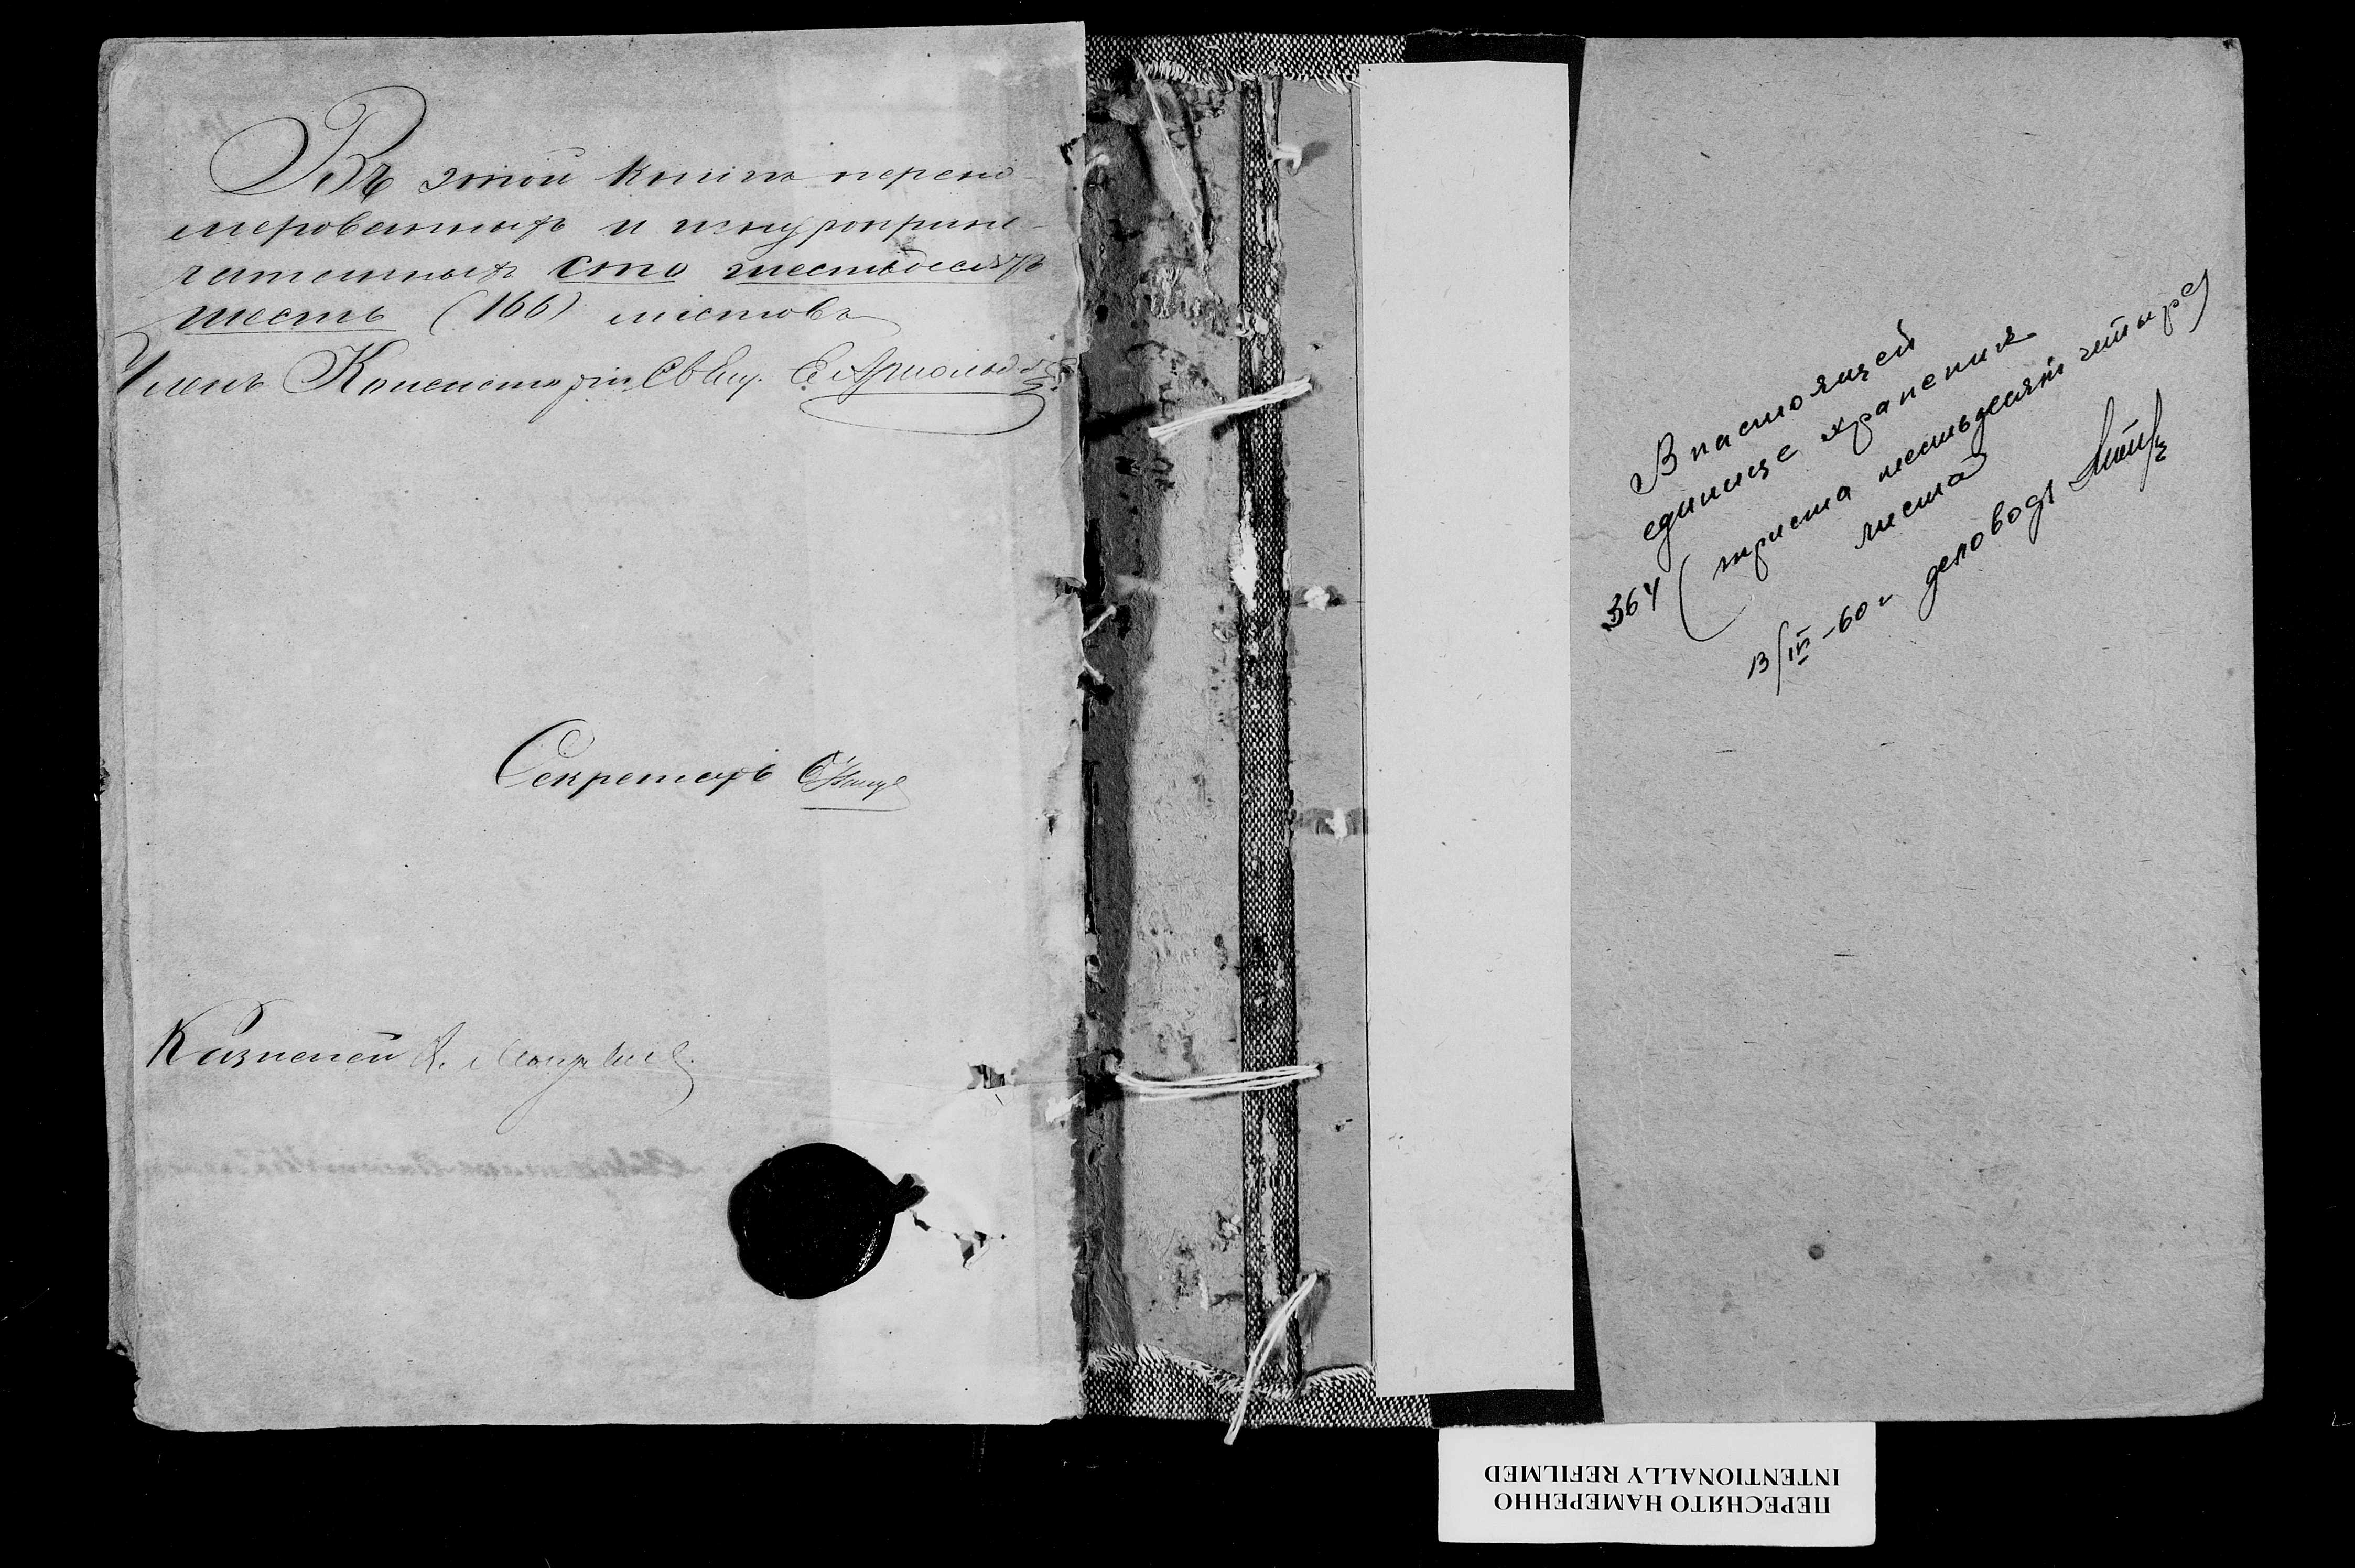 Въ этой книгѣ перено-
мерованныхъ и шнуроприпе-
чатанныхъ сто шестьдесятъ
шесть (166) листовъ
Членъ Консисторіи Свящ. Е. Арнольдовъ
Секретарь
Казначей
В настоящей
единице хранения
364 (триста шестьдесят четыре)
листа
13/IV-60 г деловод
ПЕРЕСНЯТО НАМЕРЕННО
INTENTIONALLY REFILMED